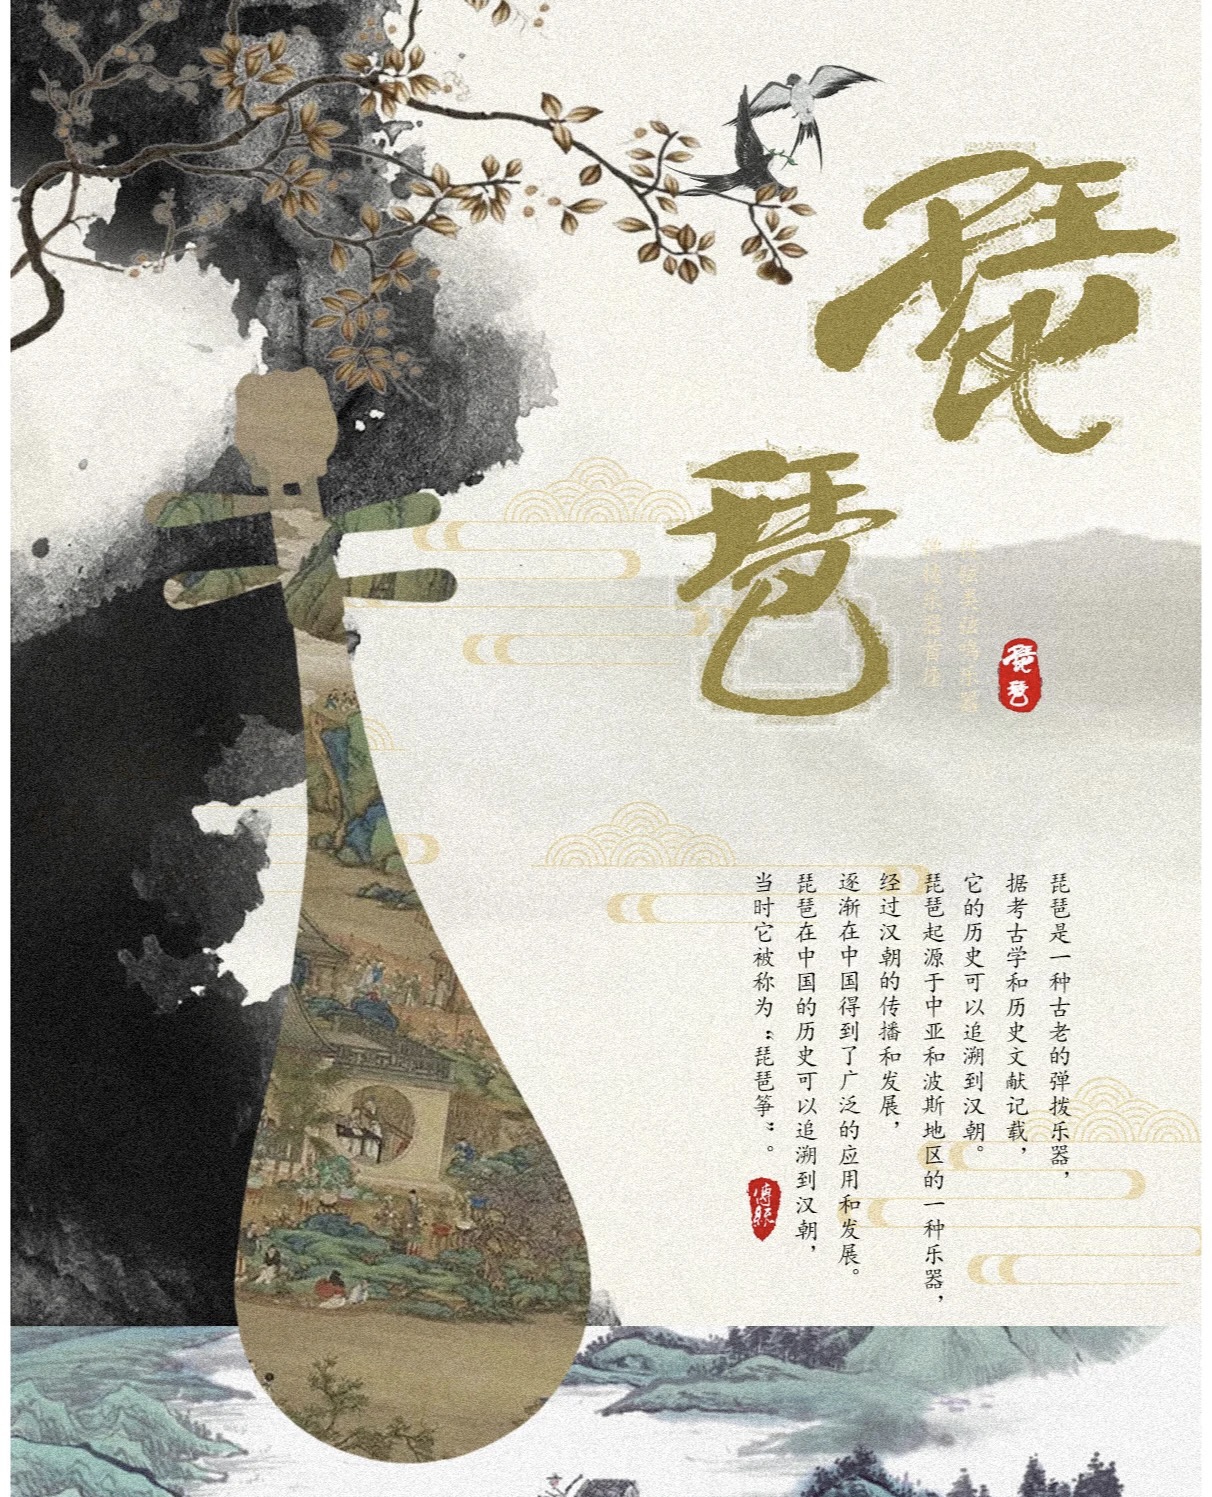 琵琶
琵琶
琵琶是一种古老的弹拨乐器，
据考古学和历史文献记载，
它的历史可以追溯到汉朝。
琵琶起源于中亚和波斯地区的一种乐器，
经过汉朝的传播和发展，
逐渐在中国得到了广泛的应用和发展。
琵琶在中国的历史可以追溯到汉朝，
当时它被称为“琵琶筝”。